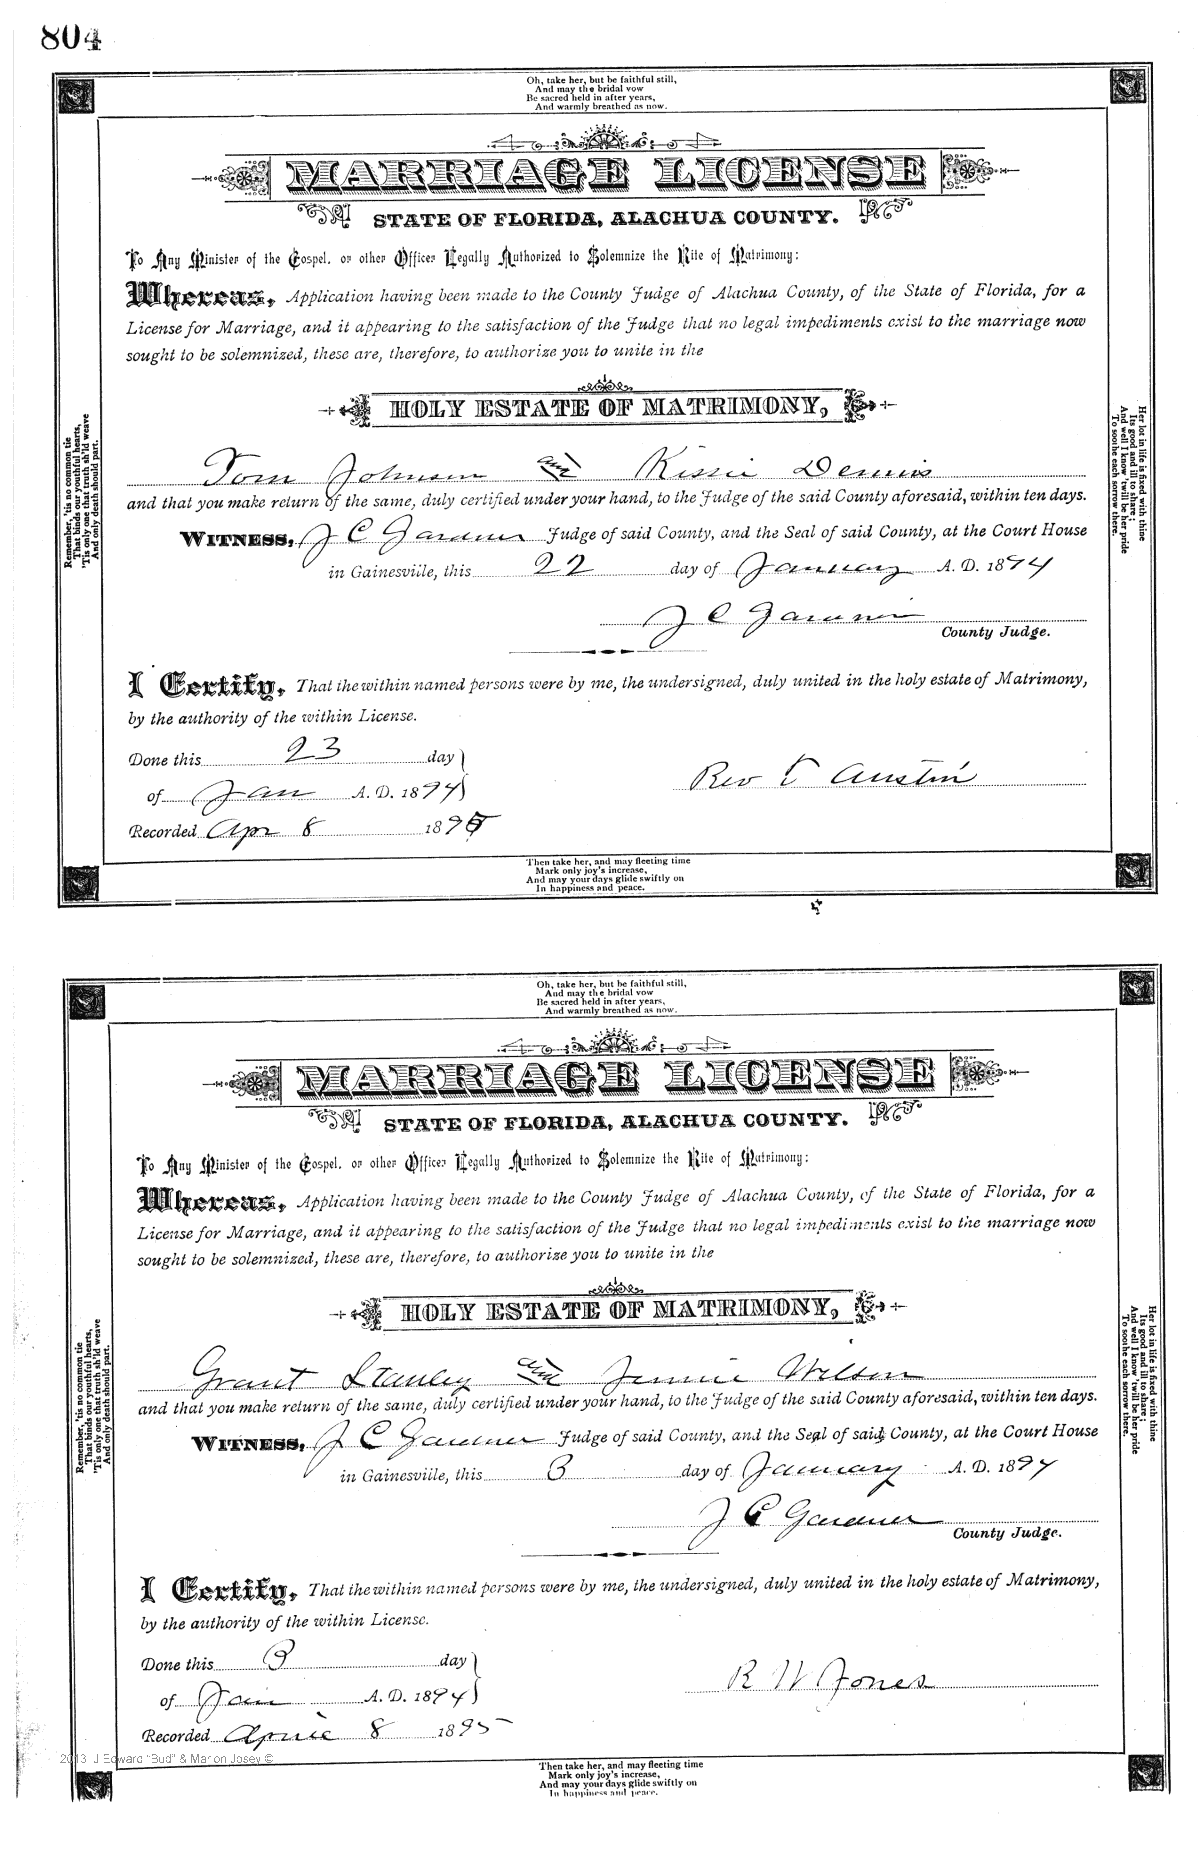 804
Oh, take her, but be faithful still,
And may the bridal vow
Be sacred held in after years,
And warmly breathed as now.
MARRIAGE LICENSE
STATE OF FLORIDA, ALACHUA COUNTY.
To Any Minister of the Gospel, or other Officer Legally Authorized to Solemnize the Rite of Matrimony:
Whereas, Application having been made to the County Judge of Alachua County, of the State of Florida, for a
License for Marriage, and it appearing to the satisfaction of the Judge that no legal impediments exist to the marriage now
sought to be solemnized, these are, therefore, to authorize you to unite in the
HOLY ESTATE OF MATRIMONY,
Tom Johnson and Kissie Dennis
and that you make return of the same, duly certified under your hand, to the Judge of the said County aforesaid, within ten days.
WITNESS, J C Gardner Judge of said County, and the Seal of said County, at the Court House
in Gainesville, this 22 day of January A. D. 1894
J C Gardner
County Judge.
I Certify, That the within named persons were by me, the undersigned, duly united in the holy estate of Matrimony,
by the authority of the within License.
Done this 23 day
of Jan A. D. 1894
Rev T Austin
Recorded Apr 8 1895
Then take her, and may fleeting time
Mark only joy's increase,
And may your days glide swiftly on
In happiness and peace.
Remember, 'tis no common tie
That binds our youthful hearts,
'Tis only one that truth sh'ld weave
And only death should part.
Her lot in life is fixed with thine
Its good and ill to share;
And well I know 'twill be her pride
To soothe each sorrow there.
Oh, take her, but be faithful still,
And may the bridal vow
Be sacred held in after years,
And warmly breathed as now.
MARRIAGE LICENSE
STATE OF FLORIDA, ALACHUA COUNTY.
To Any Minister of the Gospel, or other Officer Legally Authorized to Solemnize the Rite of Matrimony:
Whereas, Application having been made to the County Judge of Alachua County, of the State of Florida, for a
License for Marriage, and it appearing to the satisfaction of the Judge that no legal impediments exist to the marriage now
sought to be solemnized, these are, therefore, to authorize you to unite in the
HOLY ESTATE OF MATRIMONY,
Grant Stanley and Jennie Wilson
and that you make return of the same, duly certified under your hand, to the Judge of the said County aforesaid, within ten days.
WITNESS, J C Gardner Judge of said County, and the Seal of said County, at the Court House
in Gainesville, this 3 day of January A. D. 1894
J C Gardner
County Judge.
I Certify, That the within named persons were by me, the undersigned, duly united in the holy estate of Matrimony,
by the authority of the within License.
Done this 3 day
of Jan A. D. 1894
R W Jones
Recorded Aprile 8 1895
2013 J Edward "Bud" & Marion Josey ©
Then take her, and may fleeting time
Mark only joy's increase,
And may your days glide swiftly on
In happiness and peace.
Remember, 'tis no common tie
That binds our youthful hearts,
'Tis only one that truth sh'ld weave
And only death should part.
Her lot in life is fixed with thine
Its good and ill to share;
And well I know 'twill be her pride
To soothe each sorrow there.